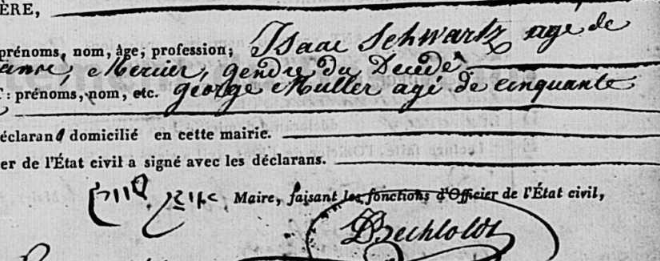 ÈRE,
prénoms, nom, âge, profession; Isaac Schwartz agé de
Mercier, gendre du Décédé
: prénoms, nom, etc. george Muller agé de cinquante
déclarant domicilié en cette mairie.
er de l'État civil a signé avec les déclarans.
Maire, faisant les fonctions d'Officier de l'État civil,
Bechtoldt